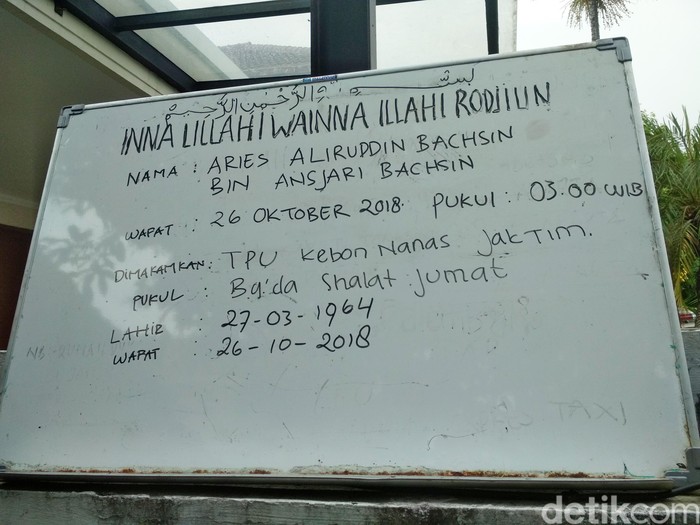 بسم الله الرحمن الرحيم
INNA LILLAHI WAINNA ILLAHI RODJIUN
NAMA : ARIES ALIRUDDIN BACHSIN
BIN ANSJARI BACHSIN
WAPAT : 26 OKTOBER 2018 PUKUL : 03.00 WIB
DIMAKAMKAN : TPU Kebon Nanas JakTim.
PUKUL : Ba'da Shalat Jumat
LAHIR : 27-03-1964
WAPAT : 26-10-2018
detikcom